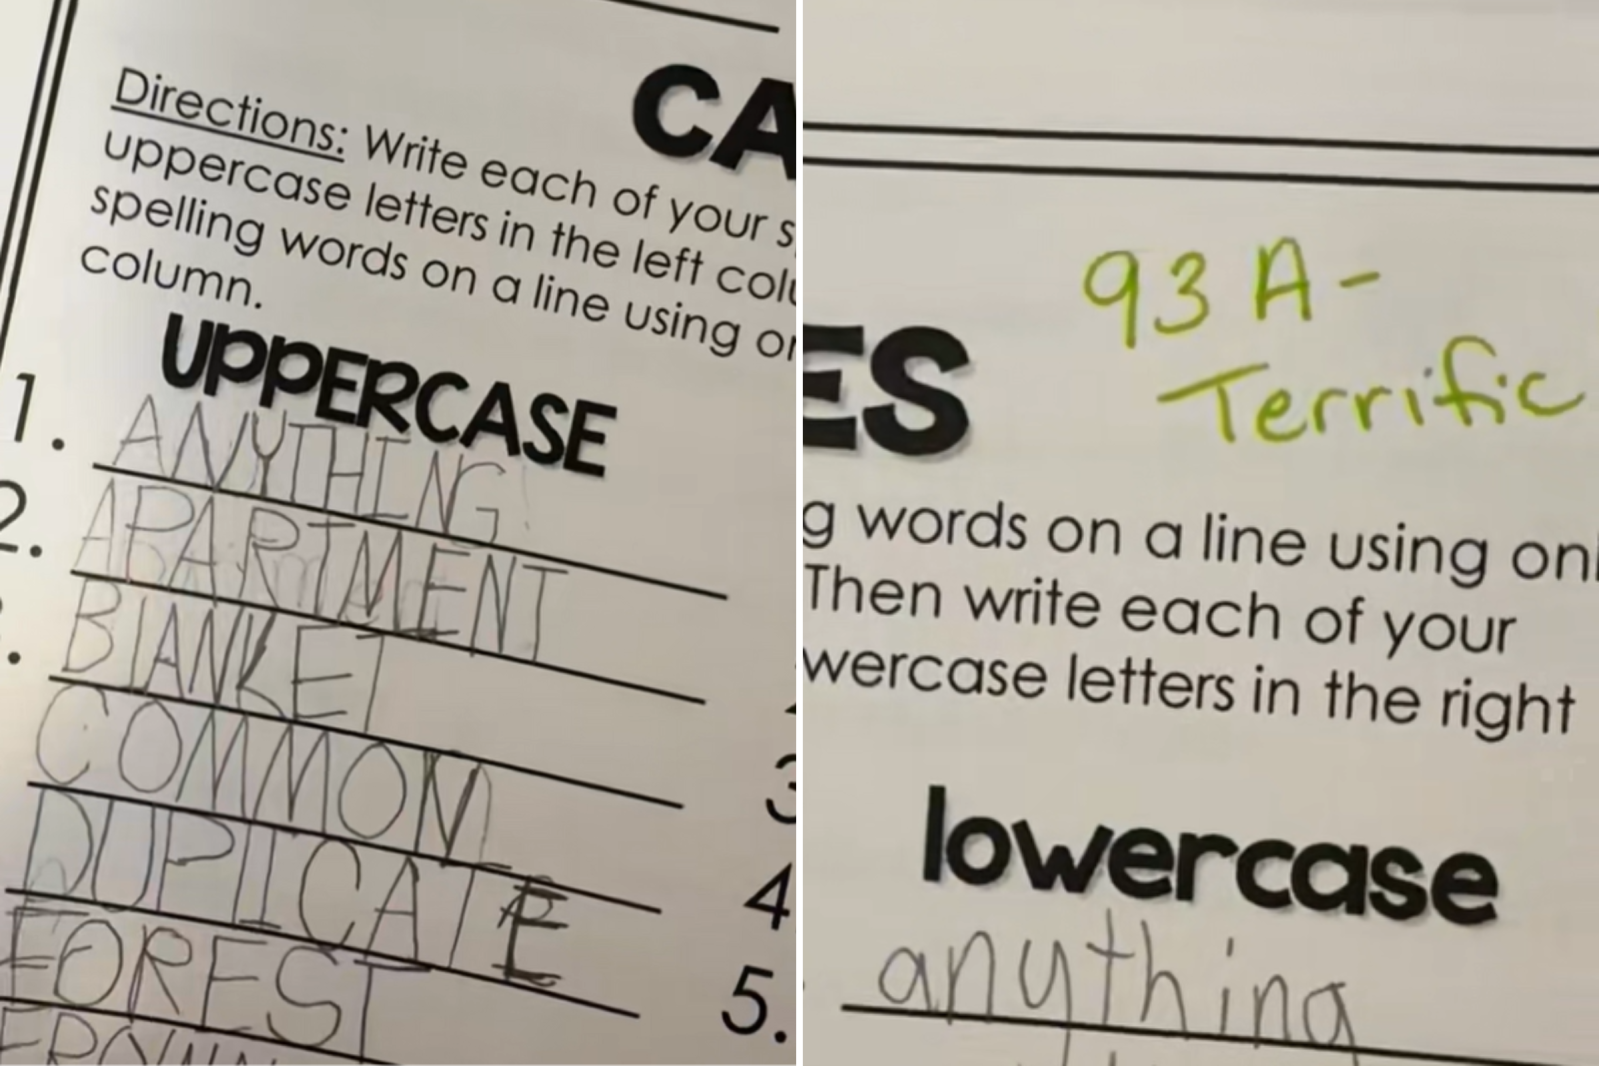 CA
Directions: Write each of your s
uppercase letters in the left colu
spelling words on a line using or
column.
UPPERCASE
1. ANYTHING
2. APARTMENT
. BIANKET
COMMON
DUPIICATE
FOREST
3
4
5.
93 A-
Terrific
ES
g words on a line using onl
Then write each of your
wercase letters in the right
lowercase
anything